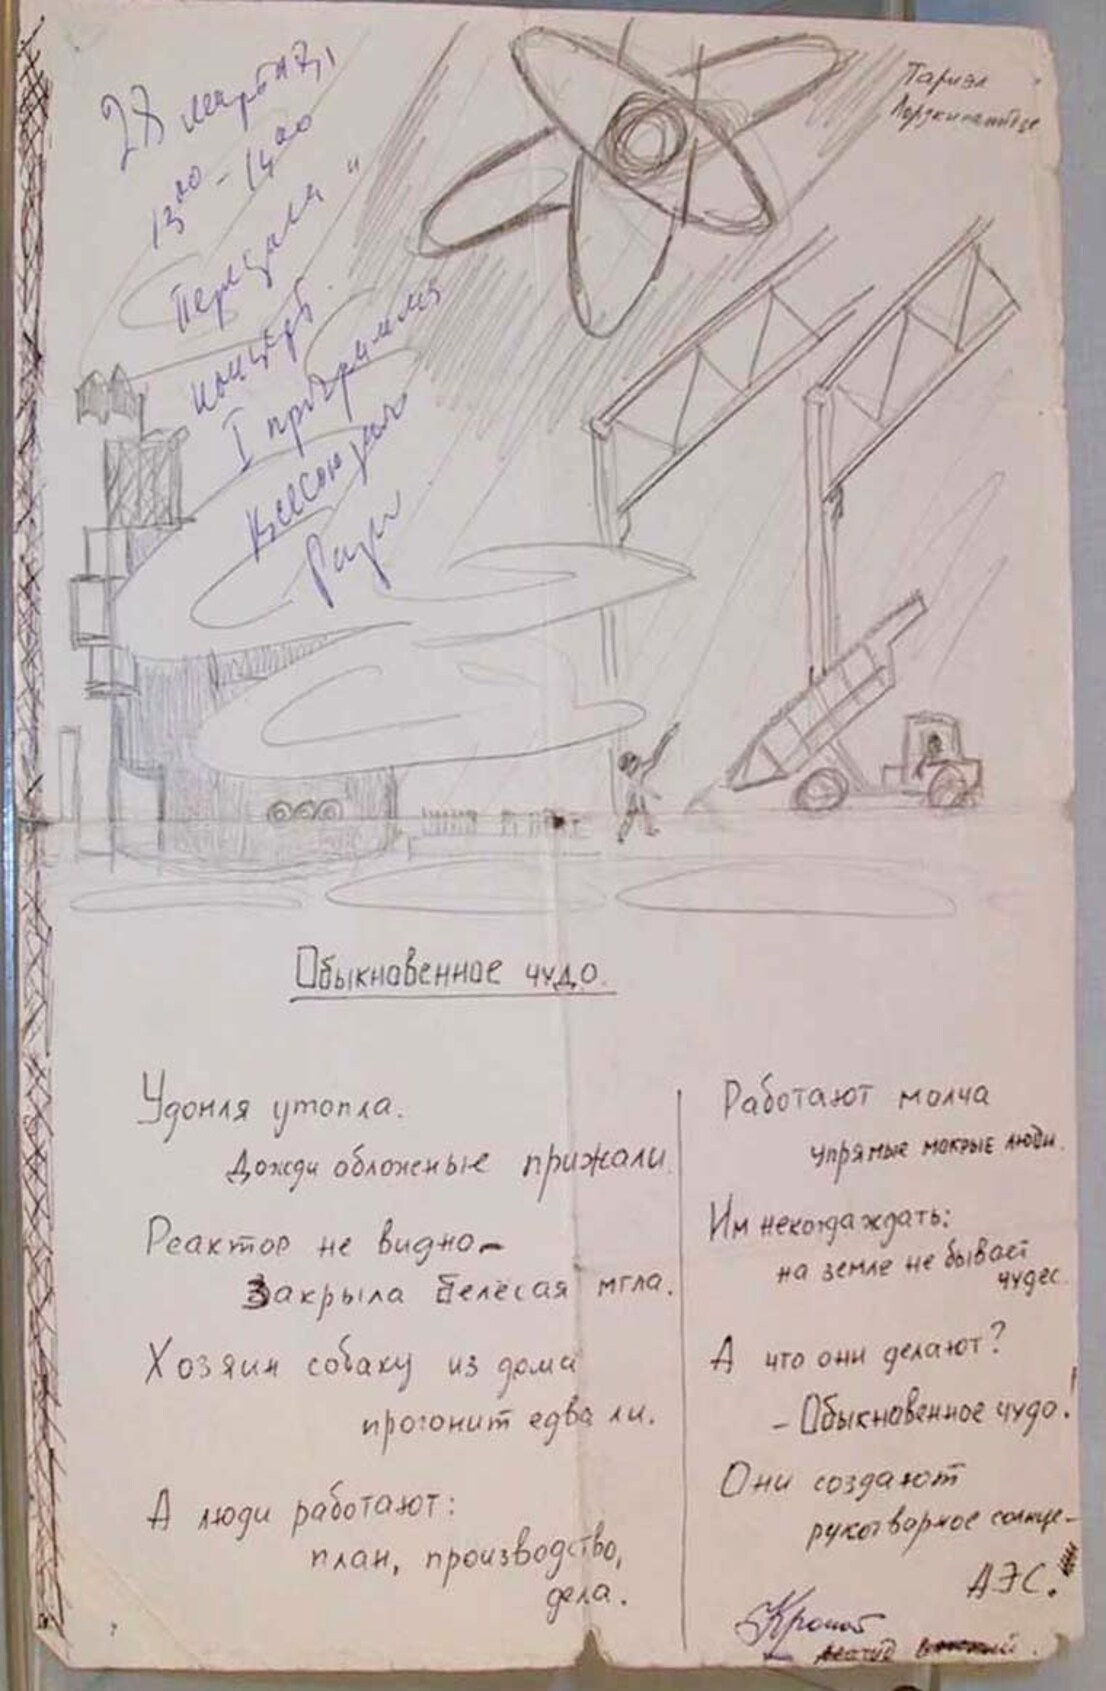 28 марта,
13 00 - 14 00
Передали
концерт
I программа
Всесоюзного
Радио
Тариэл
Лордкипанидзе
Обыкновенное чудо.
Удомля утопла.
Дожди обложеные прижали.
Реактор не видно-
Закрыла белесая мгла.
Хозяин собаку из дома
прогонит едва ли.
А люди работают:
план, производство,
дела.
Работают молча
упрямые мокрые люди.
Им некогда ждать:
на земле не бывает
чудес.
А что они делают?
- Обыкновенное чудо!
Они создают
рукотворное солнце-
АЭС!